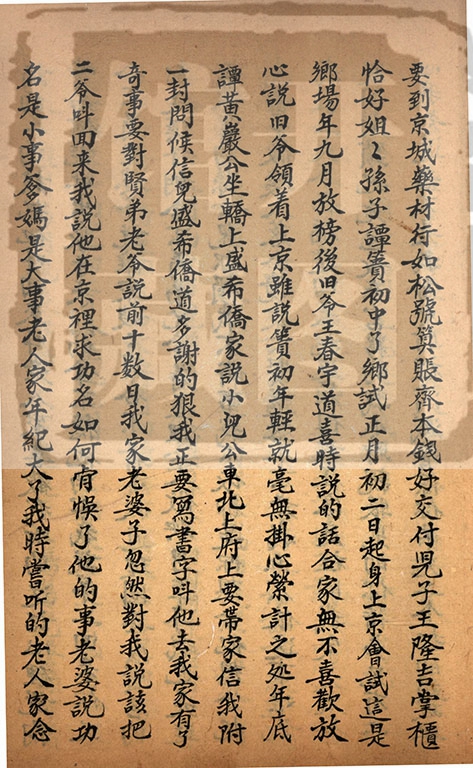 要到京城藥材行如松號算賬齊本錢好交付児子王隆吉掌櫃
恰好姐〻孫子譚簣初中了鄉試正月初二日起身上京會試這是
鄉場年九月放榜後旧爷王春宇道喜時說的話合家無不喜歡放
心說旧爷領着上京雖說簣初年輕就毫無掛心縈計之処年底
譚黄巖公坐轎上盛希僑家說小兒公車北上府上要帶家信我附
一封問候信兒盛希僑道多謝的狠我正要寫書字呌他去我家有了
奇事要對賢弟老爺說前十數日我家老婆子忽然對我說該把
二爷呌回来我說他在京裡求功名如何肯悞了他的事老婆說功
名是小事爹媽是大事老人家年紀大了我時嘗听的老人家念